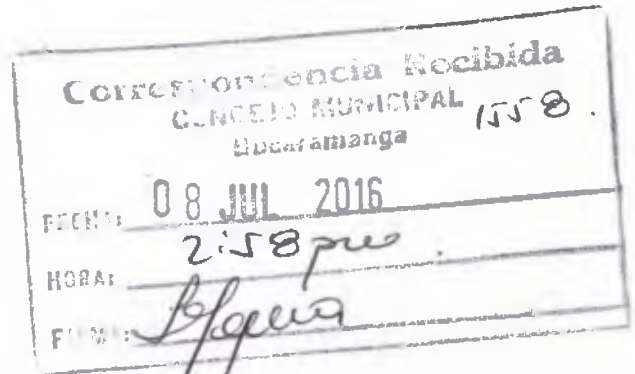 Correspondencia Recibida
CONCEJO MUNICIPAL 1558.
Bucaramanga
FECHA: 08 JUL 2016
HORA: 2:58 pm
FIRMA: